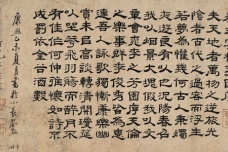 夫天地者萬物之逆旅光
陰者百代之過客而浮生
若夢為懽幾何古人秉燭
夜遊良有以也況陽春召
我以烟景大塊假我以文
章會桃李之芳園序天倫
之樂事群季俊秀皆為惠
連吾人詠歌獨慚康樂幽
賞未已高談轉清開瓊筵
以坐花飛羽觴而醉月不
有佳作何伸雅懷如詩不
成罰依金谷酒數
康熙己未夏月